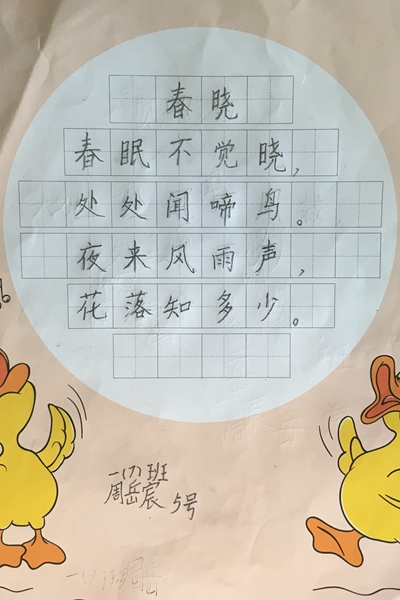 春晓
春眠不觉晓,
处处闻啼鸟。
夜来风雨声,
花落知多少。
一(7)班
周岳宸 5号